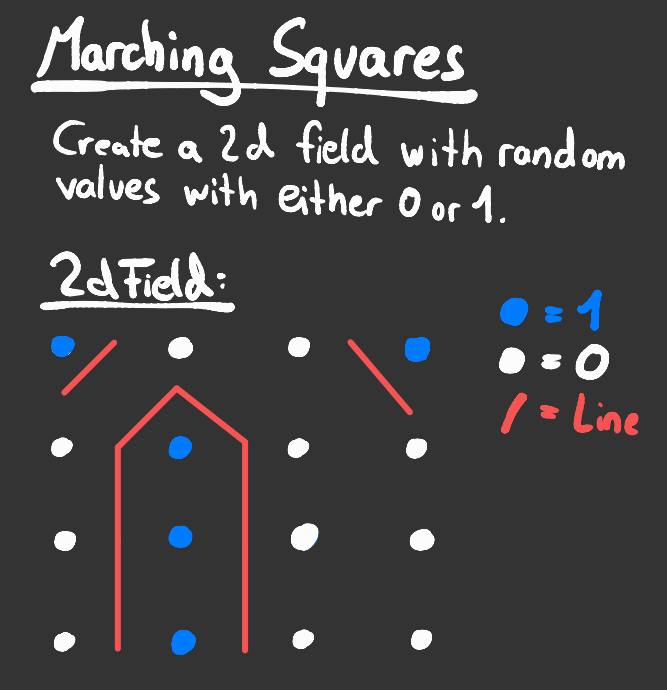 Marching Squares
Create a 2d field with random
values with either 0 or 1.
2d Field:
= 1
= 0
= Line